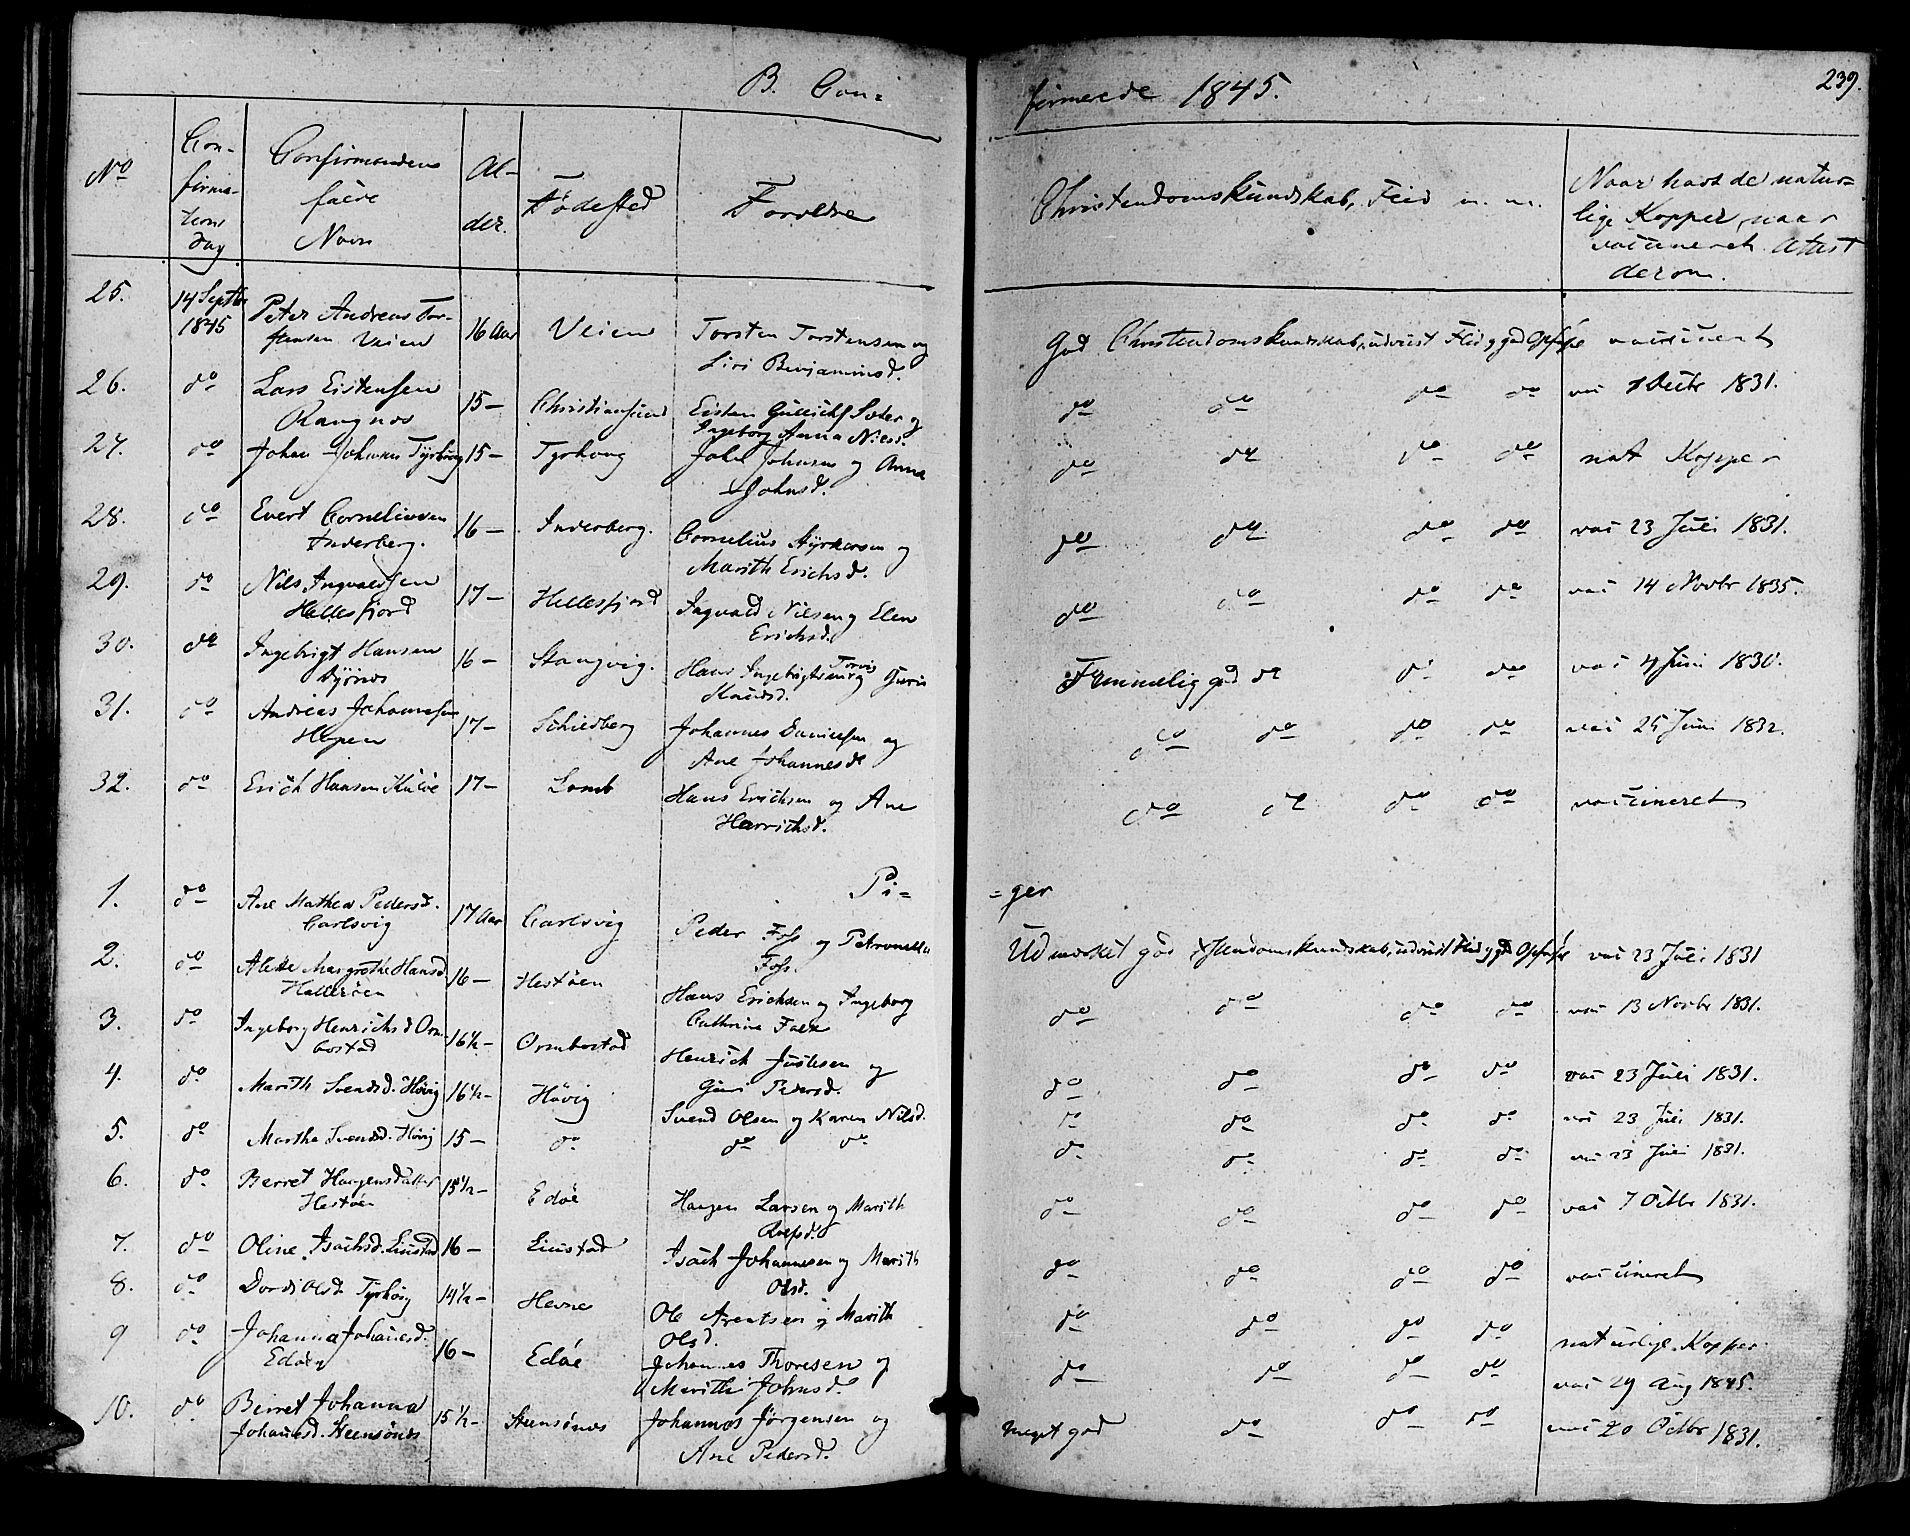 B. Con=
firmerede 1845.
239.
No
Con-
firma-
tions
Dag
Confirmandens
fulde
Navn
Al-
der.
Fødested
Forældre
Christendomskundskab, Flid m. m.
Naar havt de natur=
lige Kopper, naar
vaccineret Attest
derom.
25. 14 Septbr 1845 Peter Andreas Tor- 16 Aar Veien Torsten Torstensen og God Christendomskundskab, udviist Flid og god Opførsel vaccineret
stensen Veien Siri Benjaminsd.
26. do Lars Eistensen 15- Christiansund Eisten og do do do do vac Decbr 1831.
Rangnos Ingeborg Anna Niels.
27. do Johan Johnsen Tyrhoug 15- Tyrhoug John Johnsen og Anna do do do do nat Kopper
Johnsd.
28. do Evert Corneliusen 16- Inderberg. Cornelius Styrkersen og do do do do vac 23 Juli 1831.
Inderberg. Marith Erichsd.
29. do Nils Ingvaldsen 17- Hellesfjord Ingvald Nilsen og Elen do do do do vac 14 Novbr 1835.
Hellesfjord Erichsd.
30. do Ingebrigt Hansen 16- Stangvig. Hans Ingebrigtsen og Guri Temmelig god do do do vac 4 Juni 1830.
Dyrnes Knudsd.
31. do Andreas Johannesen 17- Schiedberg Johannes Danielsen og do do do do vac 25 Juni 1832.
Hopen Ane Johannesd
32. do Erich Hansen 17- Lomb Hans Erichsen og Ane do do do do vaccineret
Henrichsd.
Pi=
=ger
1. do Ane Mathea Pedersd. 17 Aar Carlsvig Peder Foss og Petronella Udmærket god Xstendomskundskab, udviist Flid og god Opførsel vac 23 Juli 1831
Carlsvig Foss.
2. do Alette Margrethe Hansd 16- Hestøen Hans Erichsen og Ingeborg do do do do vac 13 Novbr 1831.
Cathrine Falk
3. do Ingeborg Henrichsd Orn- 16½- Ornbostad Henrich Justsen og do do do do vac 23 Juli 1831.
bostad Guri Pedersd.
4. do Marith Svendsd. Høvig 16½- Høvig Svend Olsen og Karen Nilsd. do do do do vac 23 Juli 1831.
5. do Martha Svendsd. Høvig 15- do do do do do do do vac 23 Juli 1831.
6. do Berret Haagensdatter 15½- Edøe Haagen Larsen og Marith do do do do vac 7 Octbr 1831.
Hestøen Rolfsd.
7. do Oline Isachsd. Liustad 16- Liustad Isach Johannesen og Marith do do do do vaccineret
Olsd.
8. do Dordi Olsd Tyrhoug 14½- Hevne Ole Arentsen og Marith do do do do naturlige Kopper
Olsd.
9 do Johanna Johansd. 16- Edøe Johannes Thoresen og do do do do vac 29 Aug 1845.
Edøen Marith Johnsd.
10. do Berret Johanna 15½- Steensønes Johannes Jørgensen og meget god do do do vac 20 Octbr 1831.
Johansd. Steensønes Ane Pedersd.